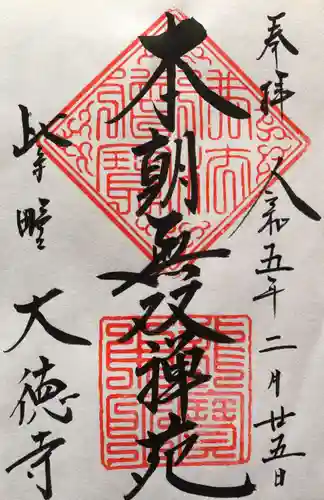 奉拝
令和五年二月廿五日
本朝無双禅苑
紫野
大徳寺